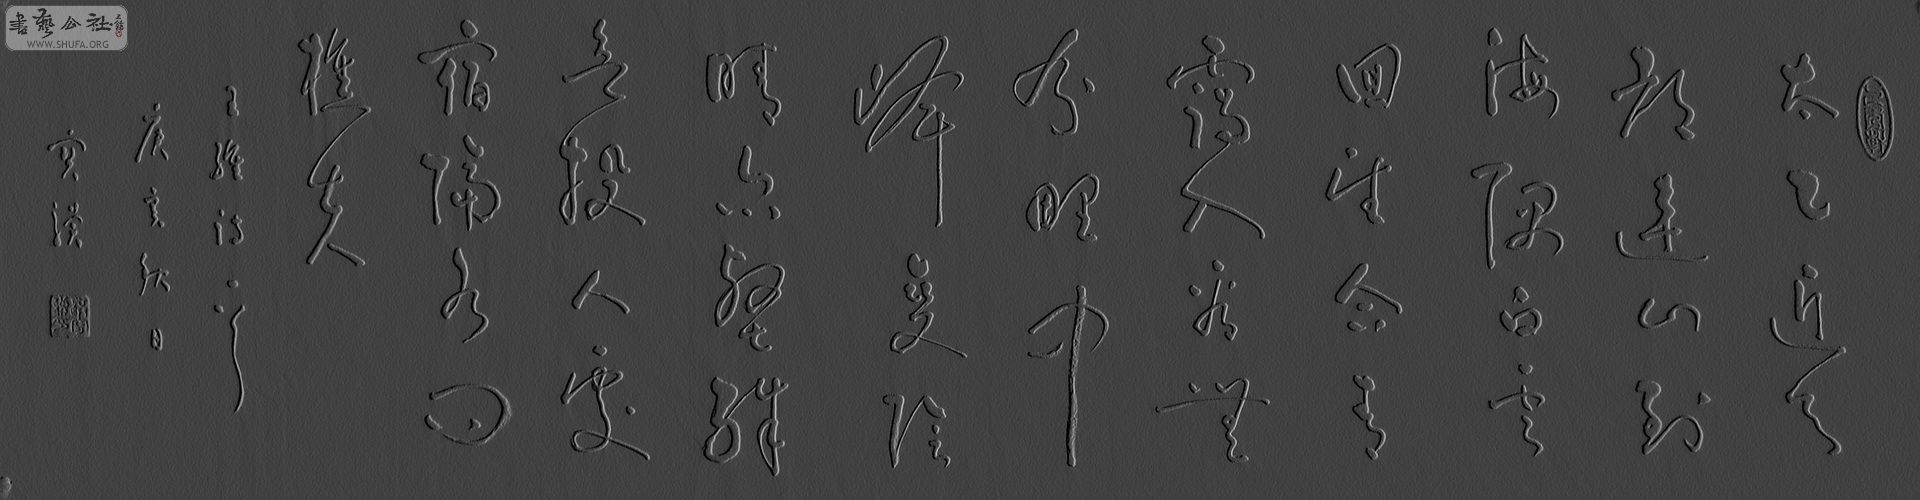 太乙近天
都連山到
海隅白雲
回望合青
靄入看無
分野中
峰變陰
晴眾壑殊
欲投人處
宿隔水問
樵夫
王維詩一首
庚寅秋日
書藝公社
WWW.SHUFA.ORG